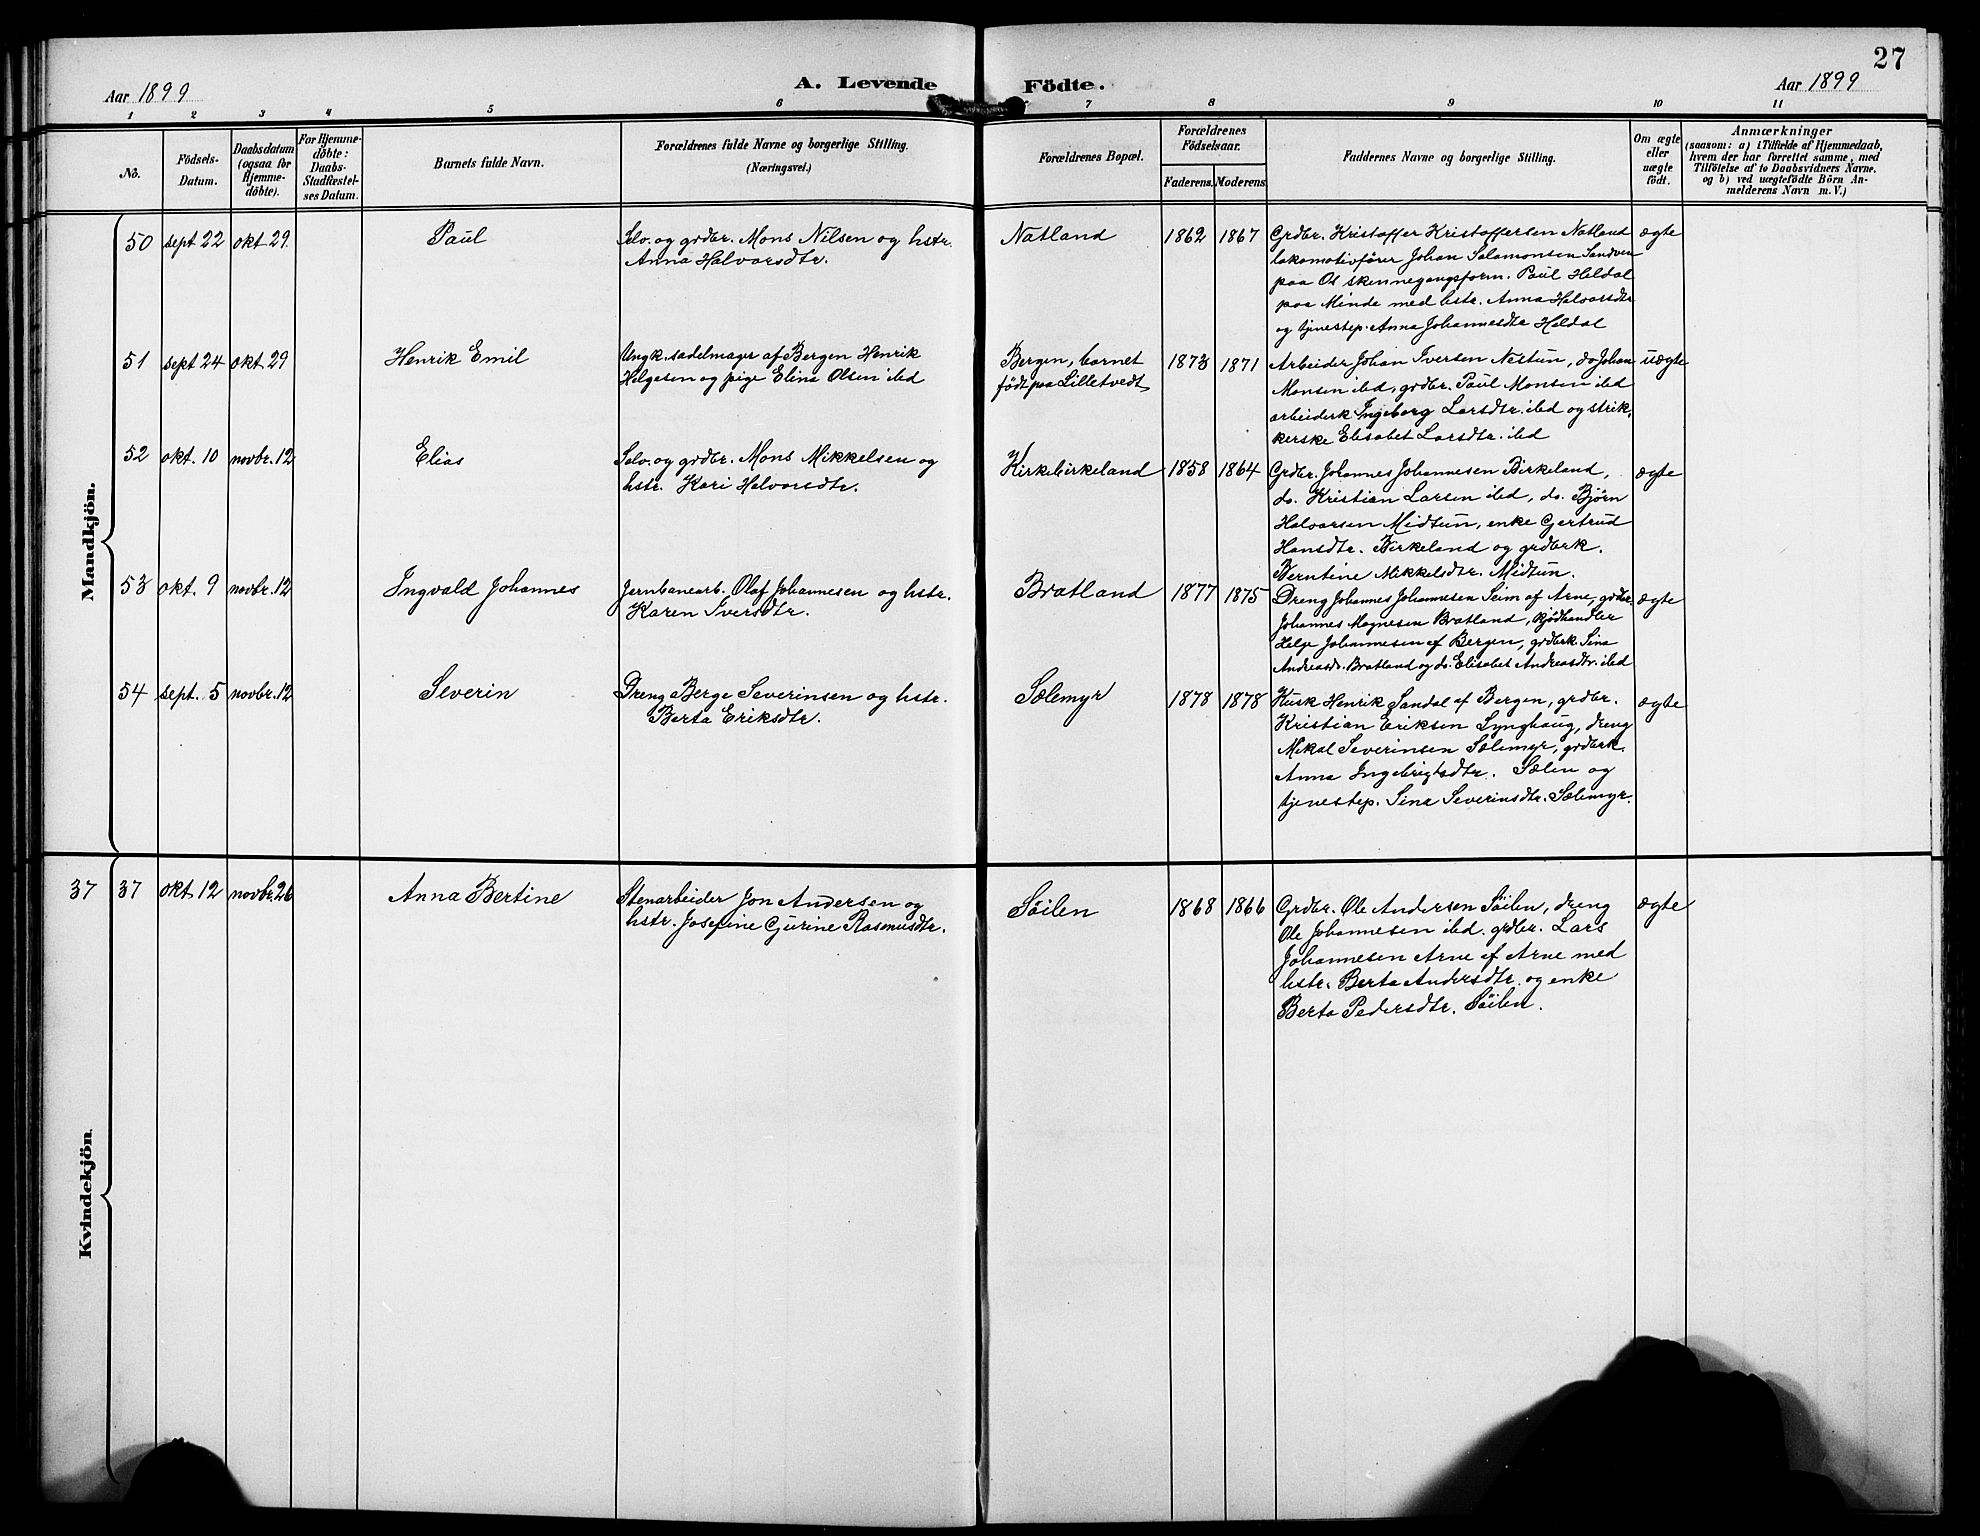 27
Aar 1899
A. Levende Födte.
Aar 1899
1 2 3 4 5 6 7 8 9 10 11
No.
Födsels-
Datum.
Daabsdatum
(ogsaa for
Hjemme-
döbte).
For Hjemme-
döbte:
Daabs-
Stadfæstel-
ses Datum.
Barnets fulde Navn.
Forældrenes fulde Navne og borgerlige Stilling.
(Næringsvei.)
Forældrenes Bopæl.
Forældrenes
Födselsaar.
Faderens. Moderens.
Faddernes Navne og borgerlige Stilling.
Om ægte
eller
uægte
födt.
Anmærkninger
(saasom: a) i Tilfælde af Hjemmedaab,
hvem der har forrettet samme, med
Tilföielse af to Daabsvidners Navne.
og b) ved uægtefödte Börn An-
melderens Navn m. V.)
Mandkjön.
50 sept 22 okt 29. Paul
Selv. og grdbr. Mons Nilsen og hstr.
Anna Halvorsdtr.
Natland 1862 1867
Grdbr. Kristoffer Kristoffersen Natland
lokomotivfører Johan Salamonsen Sandven
paa Os skinnegangsform. Paul Heldal
paa Minde med hstr. Anna Halvorsdtr
og tjenestep. Anna Johannesdtr Heldal
ægte
51 sept 24 okt 29 Henrik Emil
Ungk. sadelmager af Bergen Henrik
Helgesen og pige Elina Olsen ibd
Bergen, barnet
født paa Lilletvedt
1873 1871
Arbeider Johan Iversen Nestun, do Johan
Monsen ibd, grdbr. Paul Monsen ibd
arbeiderk Ingeborg Larsdtr. ibd og strik-
kerske Elisabet Larsdtr. ibd
uægte
52 okt. 10 novbr. 12 Elias
Selv. og grdbr. Mons Mikkelsen og
hstr. Kari Halvorsdtr.
Kirkebirkeland 1858 1864
Grdbr. Johannes Johannesen Birkeland,
do. Kristian Larsen ibd, do. Bjørn
Halvorsen Midtun, enke Gertrud
Hansdtr. Birkeland og grdbrk.
Berntine Mikkelsdtr. Midtun.
ægte
53 okt. 9 novbr. 12 Ingvald Johannes
Jernbanearb. Olaf Johannesen og hstr.
Karen Iversdtr.
Bratland 1877 1875
Dreng Johannes Johannesen Seim af Arne, grdbr.
Johannes Magnesen Bratland, kjødhandler
Helge Johannesen af Bergen, grdbrk. Sina
Andreasdr. Bratland og do. Elisabet Andreasdtr. ibd
ægte
54 sept. 5 novbr. 12 Severin
Dreng Berge Severinsen og hstr.
Berta Eriksdtr.
Sælemyr 1878 1878
Kusk Henrik Sandal af Bergen, grdbr.
Kristian Eriksen Lynghaug, dreng
Mikal Severinsen Sælemyr, grdbrk.
Anna Ingebrigtsdtr. Sælen og
tjenestep. Sina Severinsdtr. Sælemyr.
ægte
Kvindekjön.
37 37 okt 12 novbr. 26 Anna Bertine
Stenarbeider Jon Andersen og
hstr. Josefine Gurine Rasmusdtr.
Söilen 1868 1866
Grdbr. Ole Andersen Söilen, dreng
Ole Johannesen ibd. grdbr. Lars
Johannesen Arne af Arne med
hstr. Berta Andersdtr. og enke
Berta Pedersdtr. Söilen.
ægte